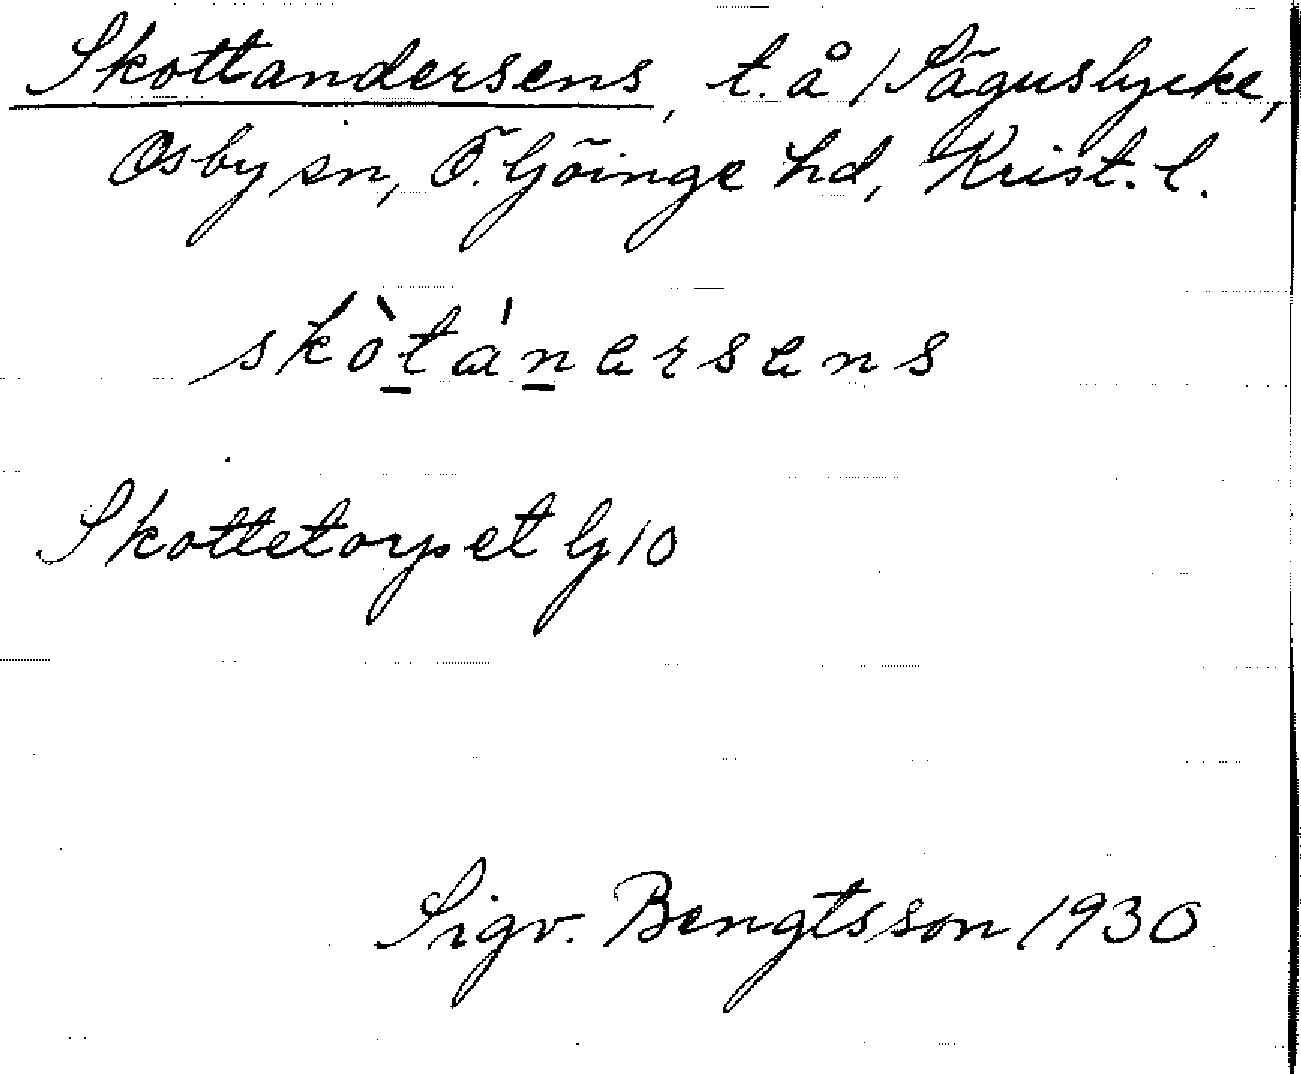 Skottandersens, t. å 1 Såguslycke,
Osby sn, Ö. Göinge hd, Krist. l.
skòtánersens
Skottetorpet G 10
Sigv. Bengtsson 1930